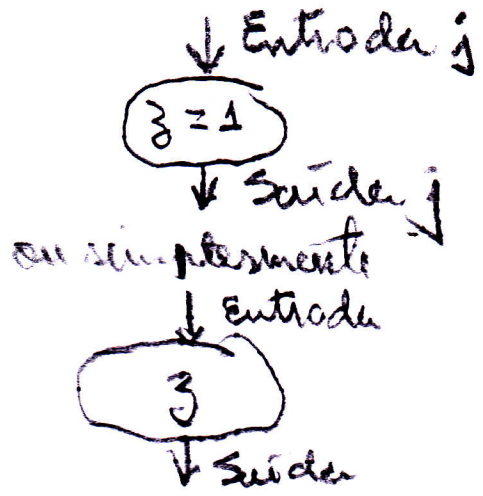 Entrada j
z = 1
Saída j
ou simplesmente
Entrada
z
Saída